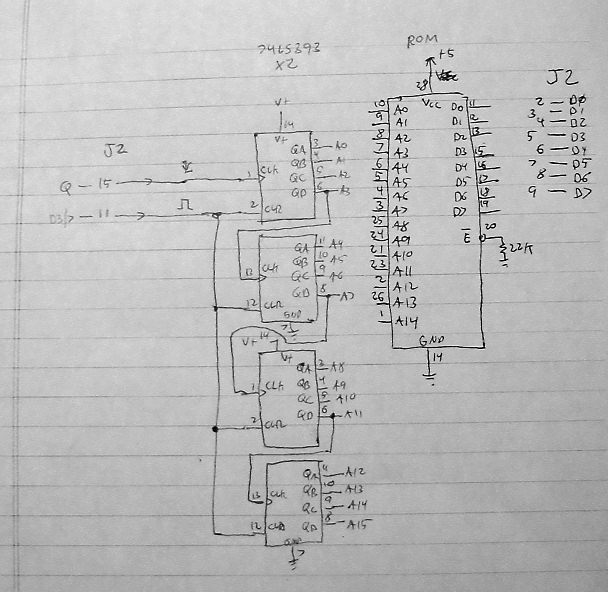 74LS393
X2
V+
14
V+
J2
Q - 15
1 CLK
QA 3 A0
QB 4 A1
QC 5 A2
QD 6 A3
11
2 CLR
13 CLK
QA 11 A4
QB 10 A5
QC 9 A6
QD 8 A7
12 CLR
GND
7
V+ 14
V+
1 CLK
QA 3 A8
QB 4 A9
QC 5 A10
QD 6 A11
2 CLR
13 CLK
QA 11 A12
QB 10 A13
QC 9 A14
QD 8 A15
12 CLR
GND
7
ROM
+5
28
VCC
10 A0
9 A1
8 A2
7 A3
6 A4
5 A5
4 A6
3 A7
25 A8
24 A9
21 A10
23 A11
2 A12
26 A13
1 A14
D0 11
D1 12
D2 13
D3 15
D4 16
D5 17
D6 18
D7 19
E 20
22K
GND
14
J2
2 - D0
3 - D1
4 - D2
5 - D3
6 - D4
7 - D5
8 - D6
9 - D7